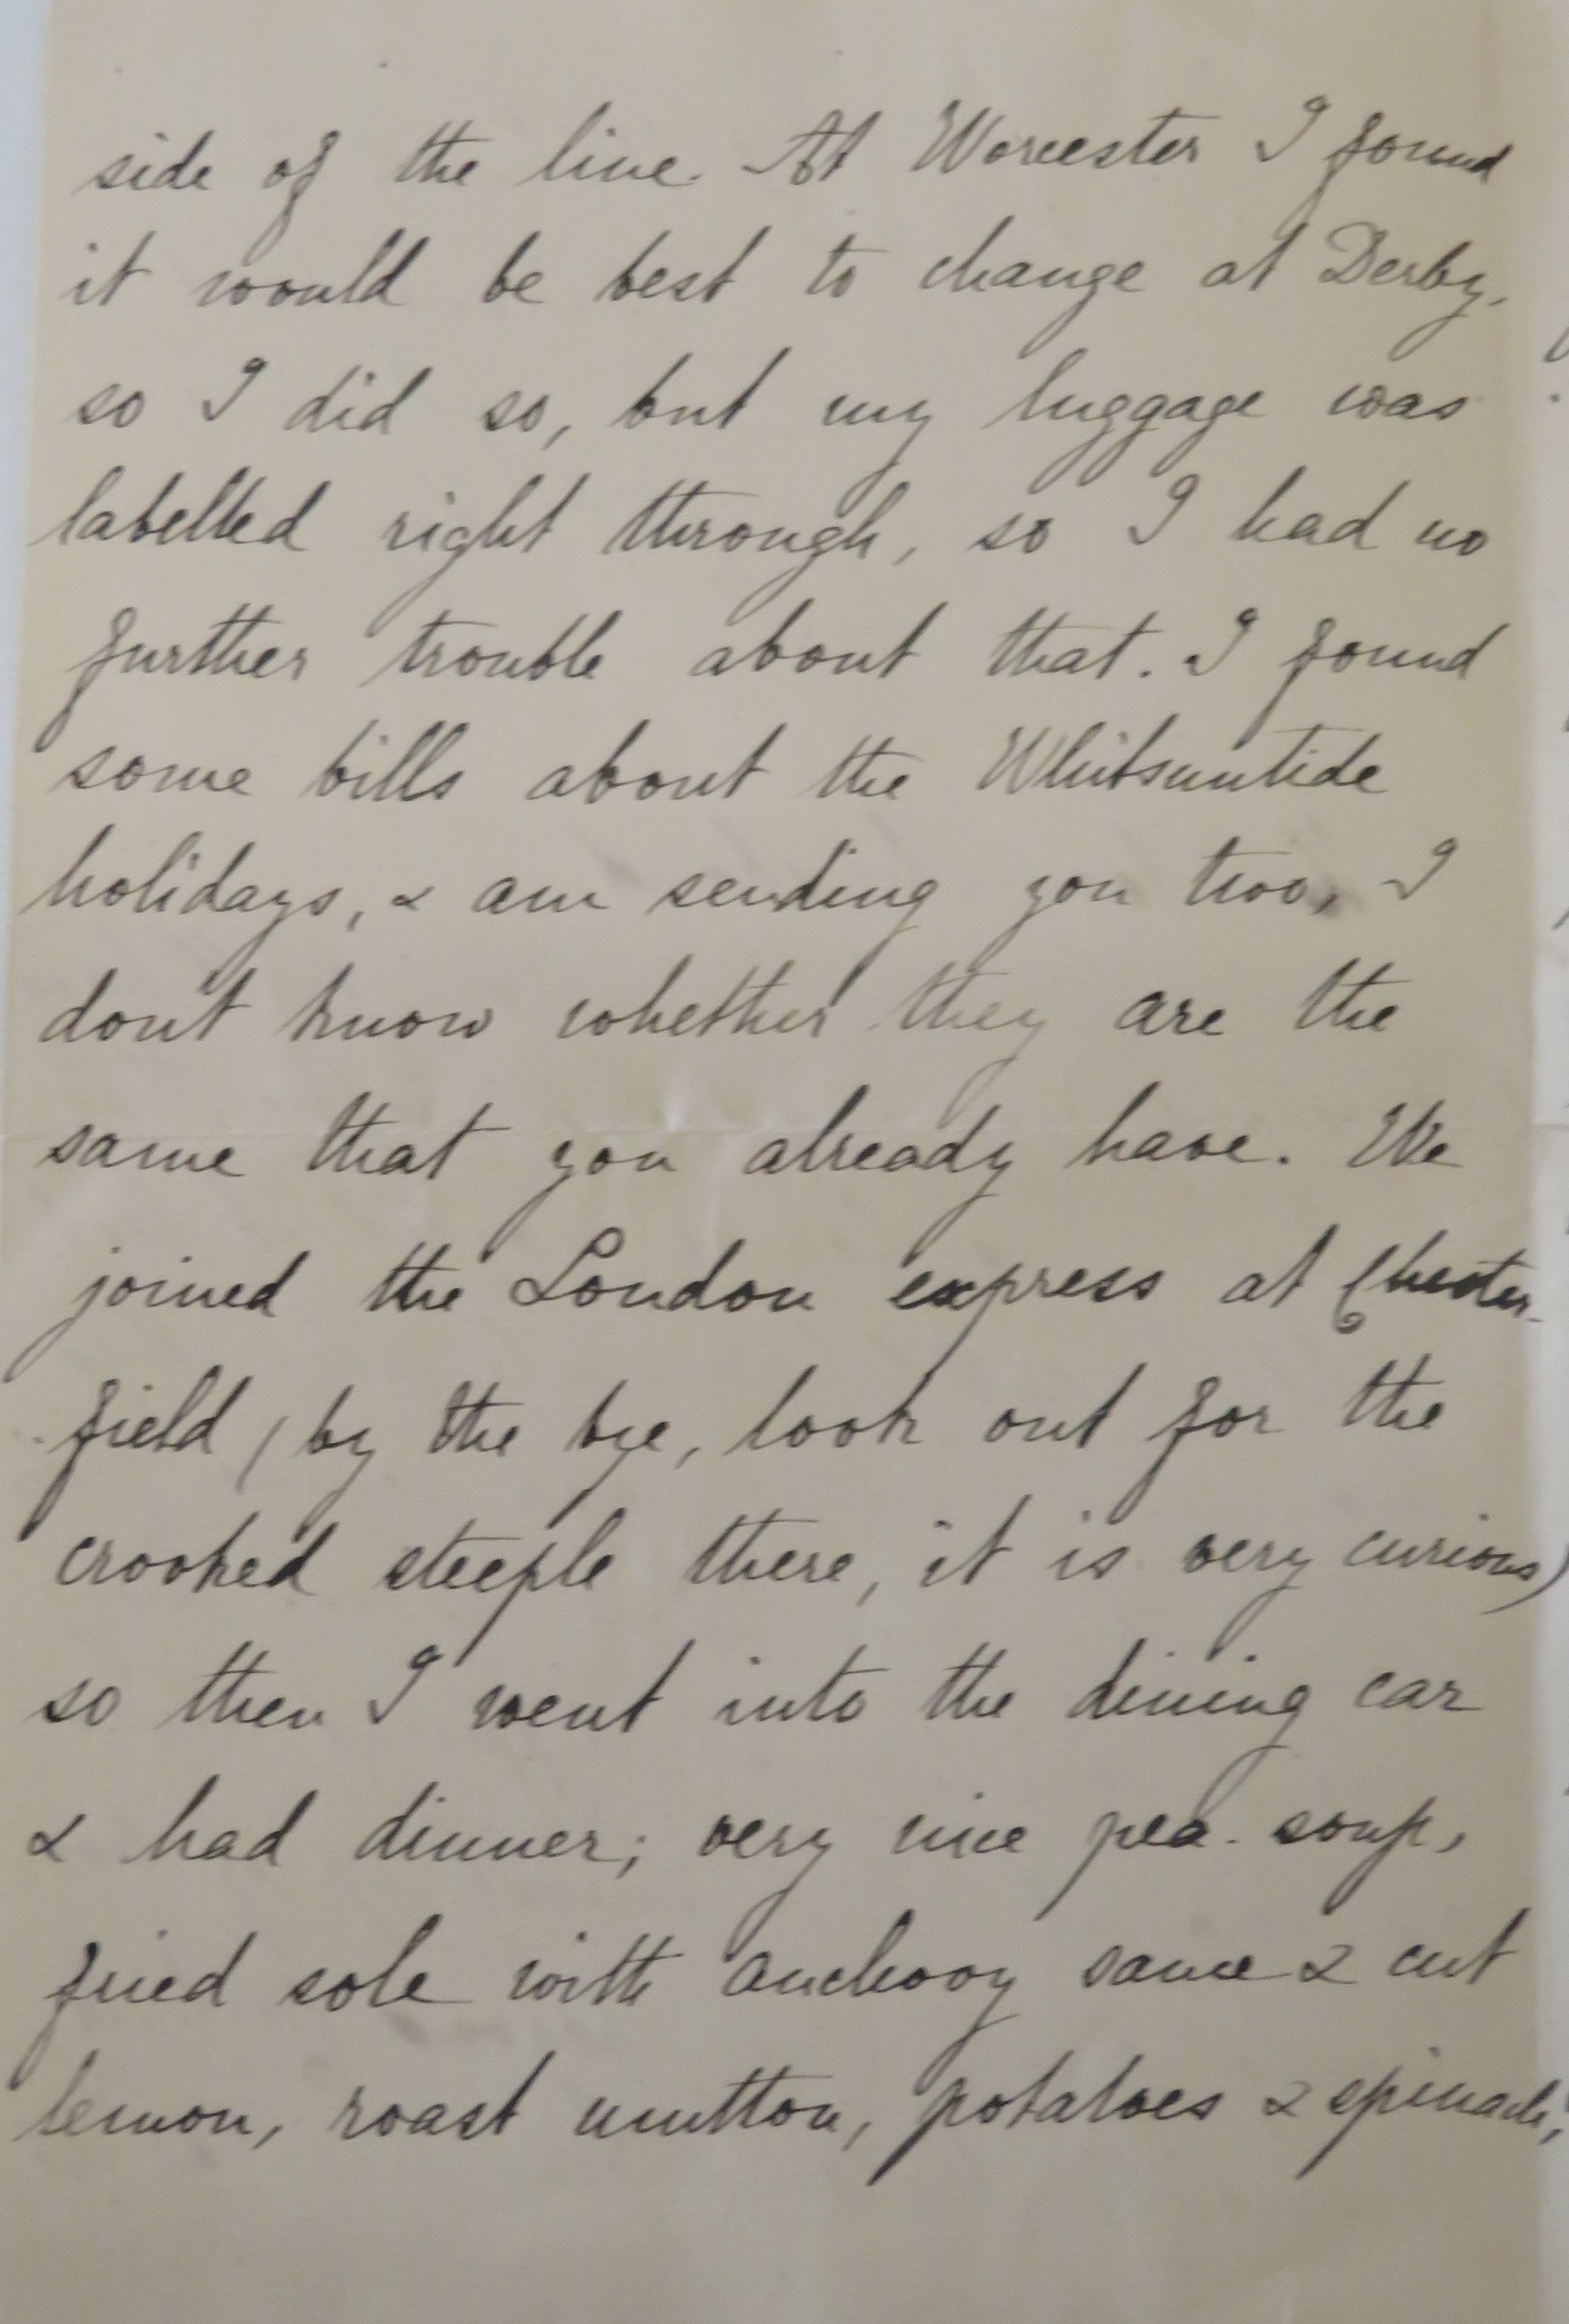 side of the line. At Worcester I found
it would be best to change at Derby,
so I did so, but my luggage was
labelled right through, so I had no
further trouble about that. I found
some bills about the Whitsuntide
holidays, & am sending you two, I
don't know whether they are the
same that you already have. We
joined the London express at Chester-
field (by the bye, look out for the
crooked steeple there, it is very curious)
so then I went into the dining car
& had dinner; very nice pea-soup,
fried sole with anchovy sauce & cut
lemon, roast mutton, potatoes & spinach,